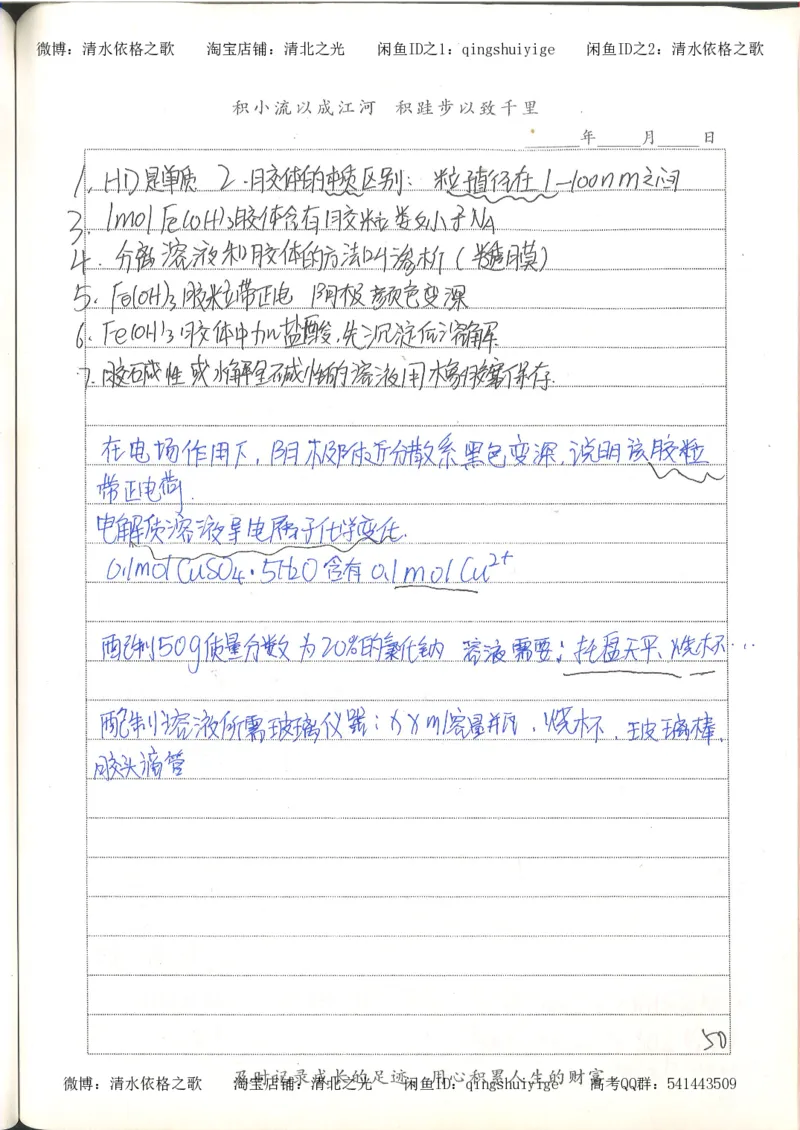 微博：清水依格之歌 淘宝店铺：清北之光 闲鱼ID之1：qingshuiyige 闲鱼ID之2：清水依格之歌
积小流以成江河 积跬步以致千里
年 月 日
1、HD是单质 2、胶体的本质区别：粒子直径在1-100nm之间
3、1mol Fe(OH)3胶体含有胶粒数小于NA
4、分离溶液和胶体的方法叫渗析（半透膜）
5、Fe(OH)3胶粒带正电 阴极颜色变深
6、Fe(OH)3胶体中加盐酸，先沉淀后溶解
7、碱性或水解呈碱性的溶液用橡胶塞保存.
在电场作用下，阴极附近分散系黑色变深，说明该胶粒
带正电荷.
电解质溶液导电属于化学变化.
0.1mol CuSO4·5H2O含有0.1mol Cu2+
配制50g质量分数为20%的氯化钠 溶液需要：托盘天平、烧杯…
配制溶液所需玻璃仪器：XXml容量瓶，烧杯，玻璃棒，
胶头滴管
50
及时记录成长的足迹 用心积累人生的财富
微博：清水依格之歌 淘宝店铺：清北之光 闲鱼ID：qingshuiyige 高考QQ群：541443509